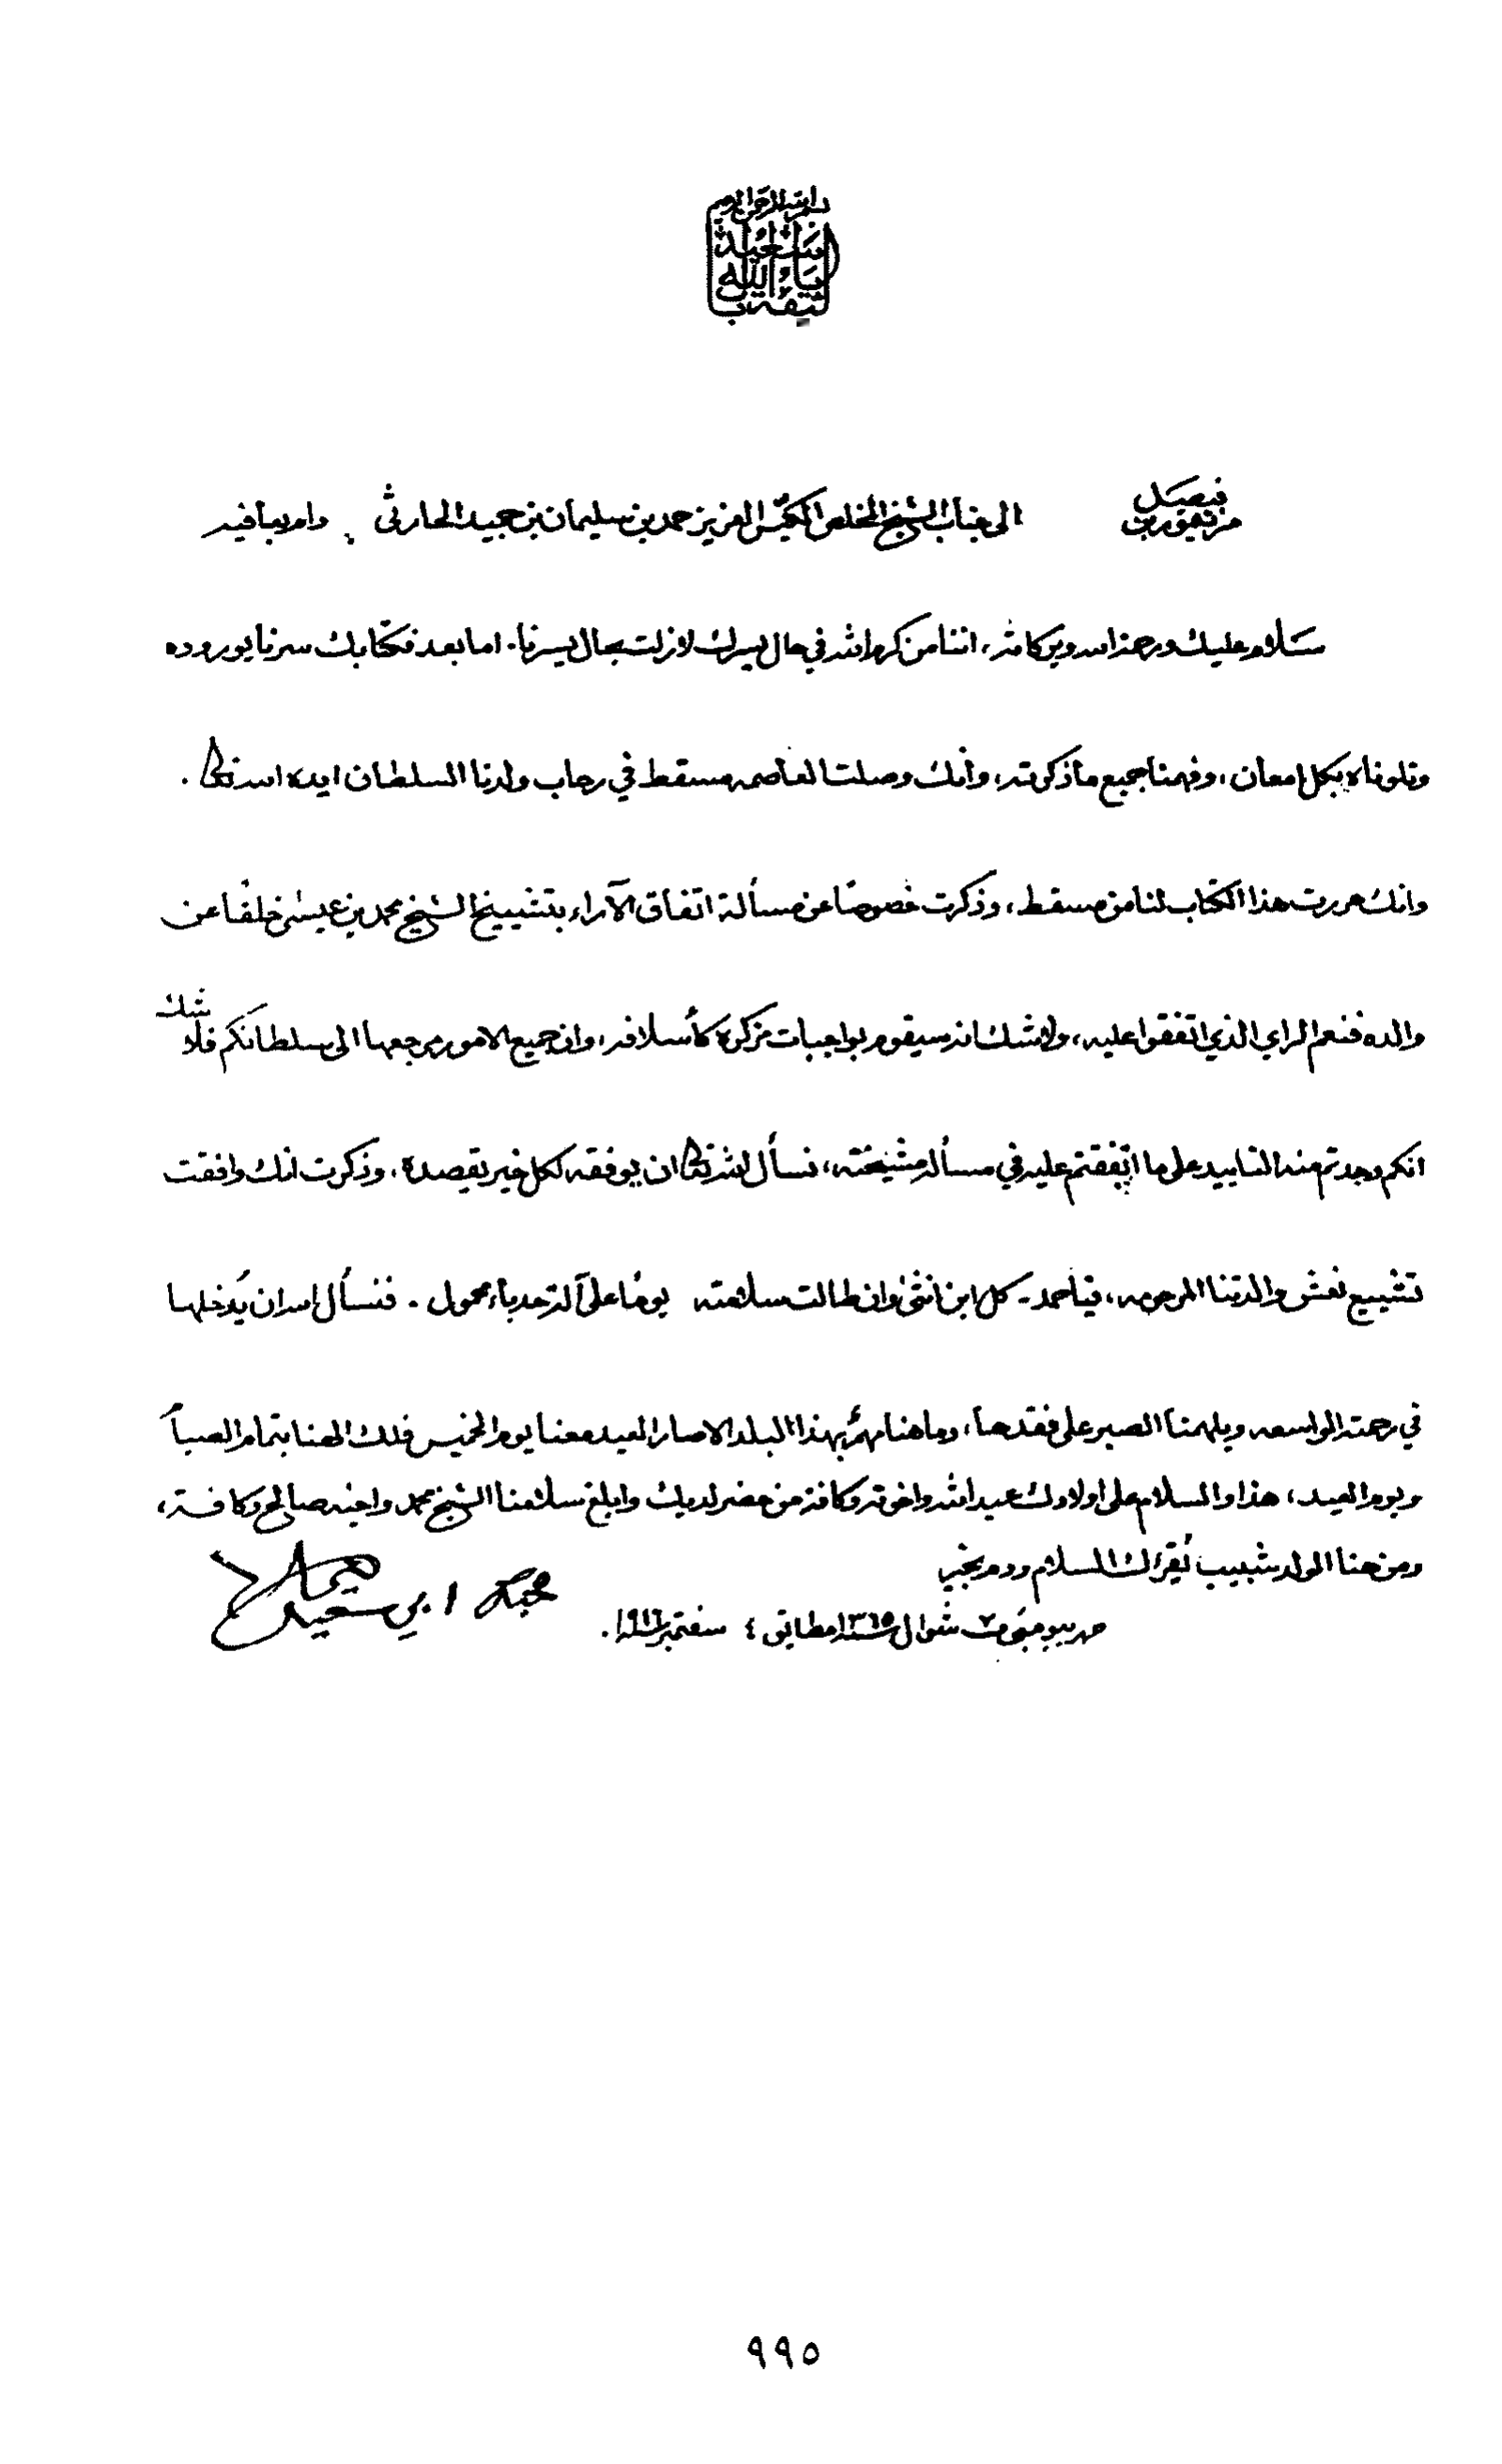 بسم الله الرحمن الرحيم
من تيمور بن فيصل الى جناب الشيخ المخلص المكرم العزيز حمد بن سليمان بن حميد الحارثي . دام بعافيه
سَلام عليك ورحمة الله وبركاته، اننا من كرم الله في حال يسرك لازلت بحال يسرنا. اما بعد فكتابك سرنا بوروده
وتلوناه بكل إمعان، وفهمنا جميع ماذكرته، وأنك وصلت العاصمه مسقط في رحاب ولدنا السلطان ايده الله تعالى .
وانك حررت هذا الكتاب لنا من مسقط، وذكرت خصوصًا عن مسألة اتفاق الآراء بتشييخ الشيخ محمد بن عيسى خلفًا عن
والده فنعم الراي الذي اتفقوا عليه، ولاشك انه سيقوم بواجبات مركزه كأسلافه، وان جميع الامور مرجعها الى سلطانكم فلا شك
انكم وجدتم منه التاييد على ما اتفقتم عليه في مسألة مشيخته، نسأل الله تعالى ان يوفقه لكل خير يقصده، وذكرت انك وافقت
تشييع نعش والدتنا المرحومه، فيا حمد - كل ابن انثى وان طالت سلامته يومًا على آلة حدباء محمول . فنسأل الله ان يُدخلها
في رحمته الواسعه ويلهمنا الصبر على فقدها، وماهنا بهذا البلد الا صار العيد معنا يوم الخميس فلك الهنا بتمام
ويوم العيد، هذا والسلام على اولادك عبدالله واخوته وكافة من حضر لديك وابلغ سلامنا الشيخ محمد واخيه صالح وكافة،
ومن هنا الولد شبيب يُقرئك السلام ودم بخير
محبك ابي سعيد
حرر ببومبي ٧ شوال سنة ١٣٦٥ مطابق ٤ سفتمبر ١٩٤٦.
٩٩٥